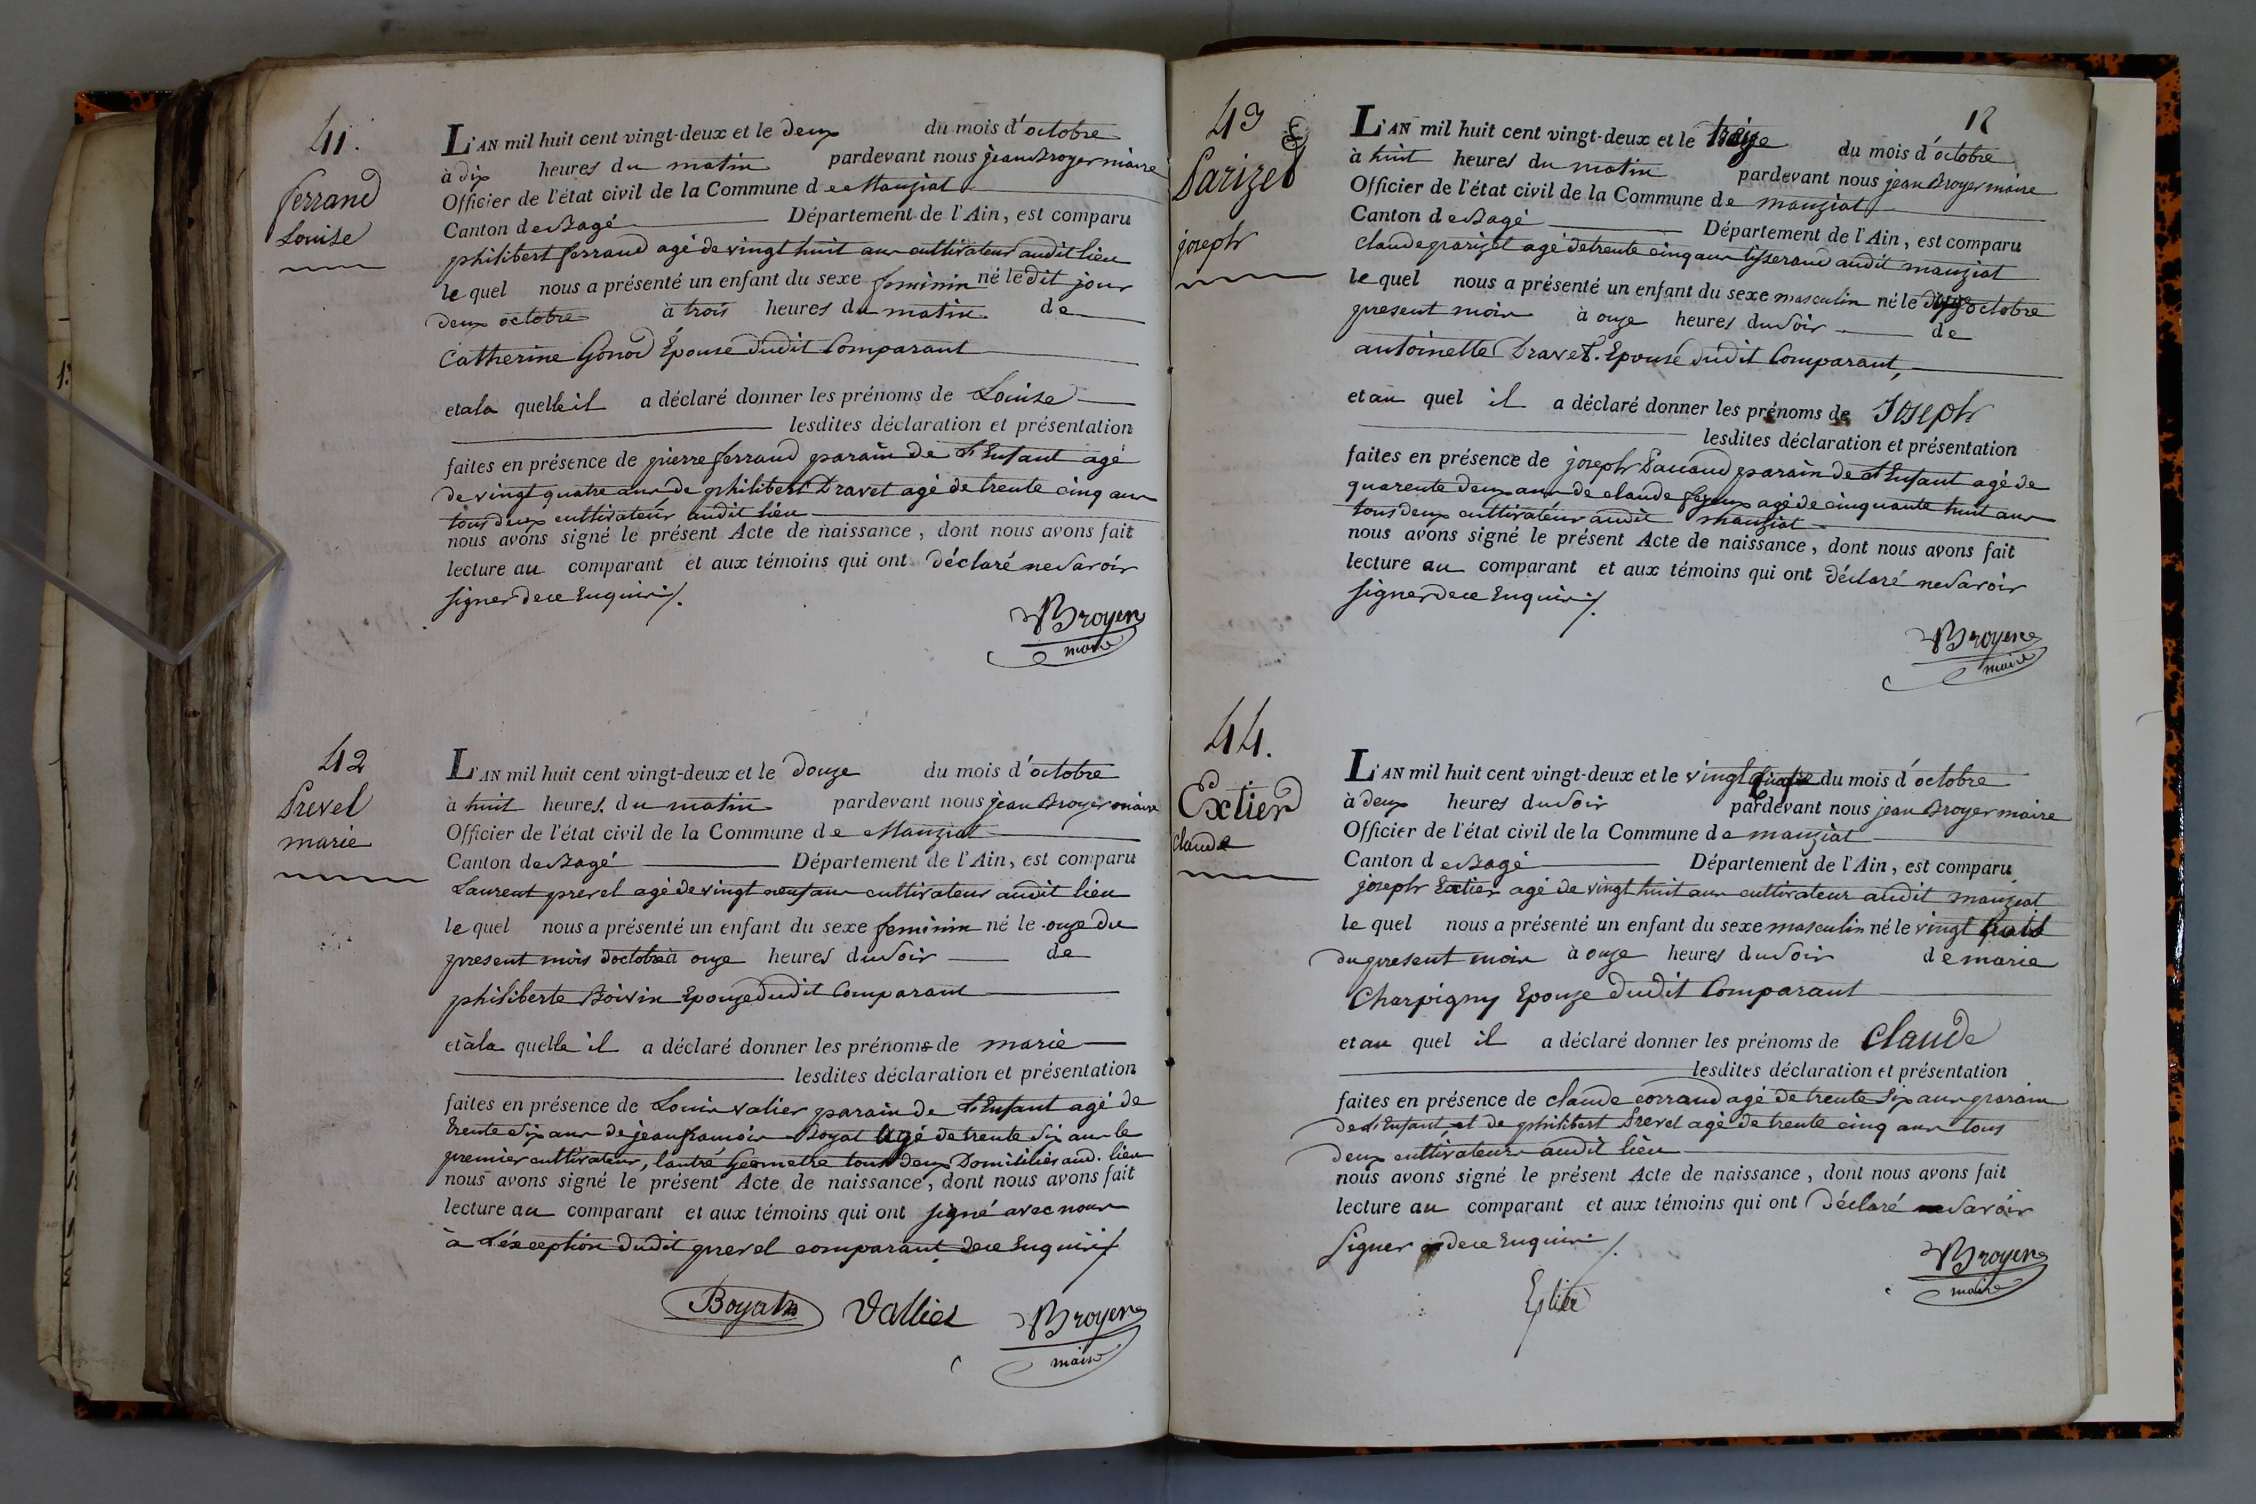 41.
ferrand
Louise
L'AN mil huit cent vingt-deux et le deux du mois d'octobre
à dix heures du matin pardevant nous jean Broyer maire
Officier de l'état civil de la Commune de Manziat
Canton de Bagé Département de l'Ain, est comparu
philibert ferrand agé de vingt huit ans cultivateur audit lieu
le quel nous a présenté un enfant du sexe feminin né le dit jour
deux octobre à trois heures du matin de
Catherine Gonod Epouse dudit Comparant
et a la quelle il a déclaré donner les prénoms de Louise
lesdites déclaration et présentation
faites en présence de pierre ferrand parain de l'Enfant agé
de vingt quatre ans de philibert Dravet agé de trente cinq ans
tous deux cultivateurs audit lieu
nous avons signé le présent Acte de naissance, dont nous avons fait
lecture au comparant et aux témoins qui ont déclaré ne savoir
signer de ce Enquis ./.
Broyer
maire
42
Prevel
marie
L'AN mil huit cent vingt-deux et le douze du mois d'octobre
à huit heures du matin pardevant nous jean Broyer maire
Officier de l'état civil de la Commune de Manziat
Canton de Bagé Département de l'Ain, est comparu
Laurent prevel agé de vingt neuf ans cultivateur audit lieu
le quel nous a présenté un enfant du sexe feminin né le onze du
present mois d'octobre à onze heures du soir de
philiberte Boivin Epouze dudit Comparant
et à la quelle il a déclaré donner les prénoms de marie
lesdites déclaration et présentation
faites en présence de Louis valier parain de l'Enfant agé de
trente six ans de jean francois Boyat agé de trente six ans le
premier cultivateur, l'autre Geometre tous deux Domiciliés aud. lieu
nous avons signé le présent Acte de naissance, dont nous avons fait
lecture au comparant et aux témoins qui ont signé avec nous
à L'exception dudit prevel comparant de ce Enquis ./.
Boyat Vallier Broyer
maire
12
43
Parizet
joseph
L'AN mil huit cent vingt-deux et le treize du mois d'octobre
à huit heures du matin pardevant nous jean Broyer maire
Officier de l'état civil de la Commune de manziat
Canton de Bagé Département de l'Ain, est comparu
claude parizet agé de trente cinq ans tisserand audit manziat
le quel nous a présenté un enfant du sexe masculin né le octobre
present mois à onze heures du soir de
antoinette Dravet. Epouse dudit Comparant,
et au quel il a déclaré donner les prénoms de Joseph
lesdites déclaration et présentation
faites en présence de joseph parain de l'Enfant agé de
quarente deux ans de claude agé de cinquante huit ans
tous deux cultivateurs audit Manziat
nous avons signé le présent Acte de naissance, dont nous avons fait
lecture au comparant et aux témoins qui ont déclaré ne savoir
signer de ce Enquis ./.
Broyer
maire
44.
Extier
claude
L'AN mil huit cent vingt-deux et le vingt quatre du mois d'octobre
à deux heures du soir pardevant nous jean Broyer maire
Officier de l'état civil de la Commune de manziat
Canton de Bagé Département de l'Ain, est comparu
joseph Extier agé de vingt huit ans cultivateur audit manziat
le quel nous a présenté un enfant du sexe masculin né le vingt trois
du present mois à onze heures du soir de marie
Charpigny Epouze dudit Comparant
et au quel il a déclaré donner les prénoms de Claude
lesdites déclaration et présentation
faites en présence de claude corrand agé de trente six ans parain
de l'Enfant, et de philibert Prevel agé de trente cinq ans tous
deux cultivateurs audit lieu
nous avons signé le présent Acte de naissance, dont nous avons fait
lecture au comparant et aux témoins qui ont déclaré ne savoir
signer de ce Enquis ./.
Broyer
maire